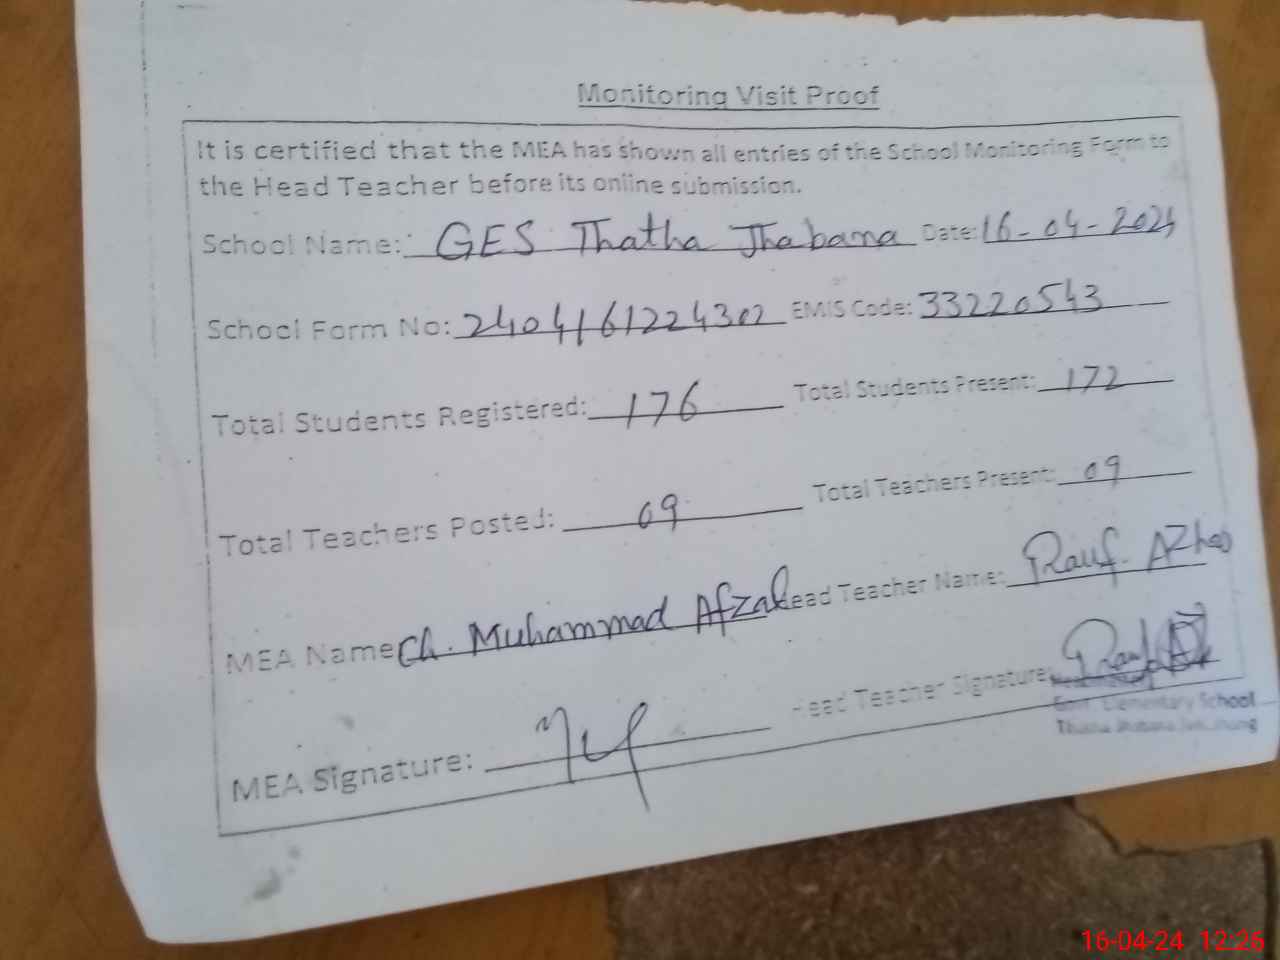 Monitoring Visit Proof
It is certified that the MEA has shown all entries of the School Monitoring Form to
the Head Teacher before its online submission.
School Name: GES Thatha Jhabana Date: 16-04-2024
School Form No: 2404161224302 EMIS Code: 33220543
Total Students Registered: 176 Total Students Present: 172
Total Teachers Posted: 09 Total Teachers Present: 09
MEA Name Ch. Muhammad Afzal Head Teacher Name: Rauf. Azhar
MEA Signature: Head Teacher Signature:
Govt. Elementary School
Thatha Jhabana
16-04-24 12:26